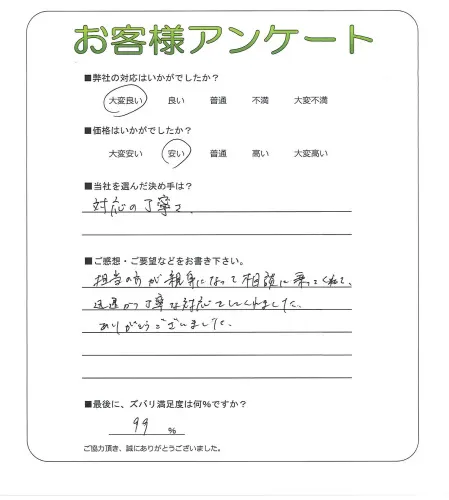 お客様アンケート
■弊社の対応はいかがでしたか?
大変良い 良い 普通 不満 大変不満
■価格はいかがでしたか?
大変安い 安い 普通 高い 大変高い
■当社を選んだ決め手は?
対応の丁寧さ、
■ご感想・ご要望などをお書き下さい。
担当の方が親身になって相談に乗ってくれて、
迅速かつ丁寧な対応をしてくれました。
ありがとうございました。
■最後に、ズバリ満足度は何%ですか?
99 %
ご協力頂き、誠にありがとうございました。